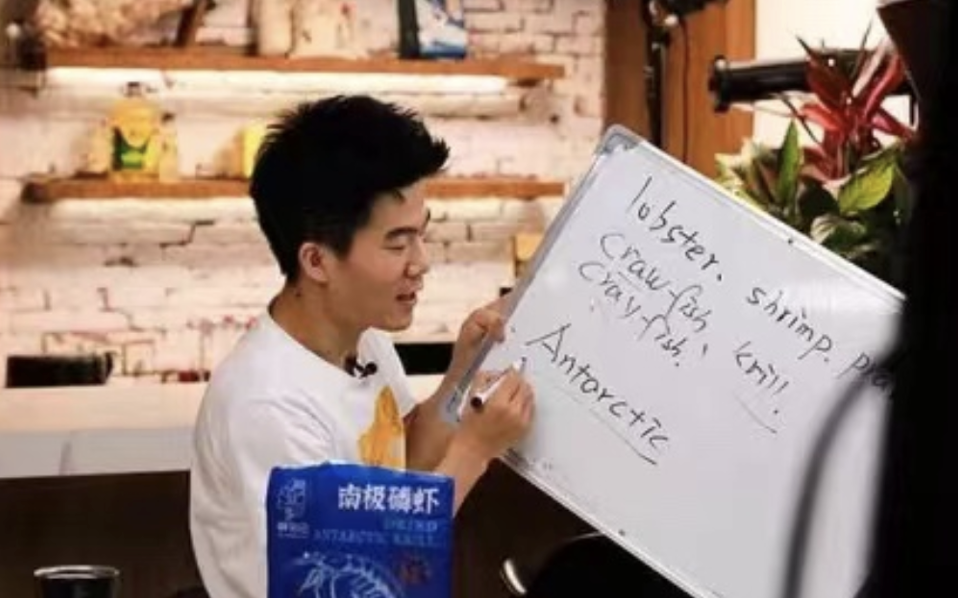 lobster. shrimp.
craw-fish
cray-fish. krill.
Antarctic
南极磷虾
ANTARCTIC KRILL